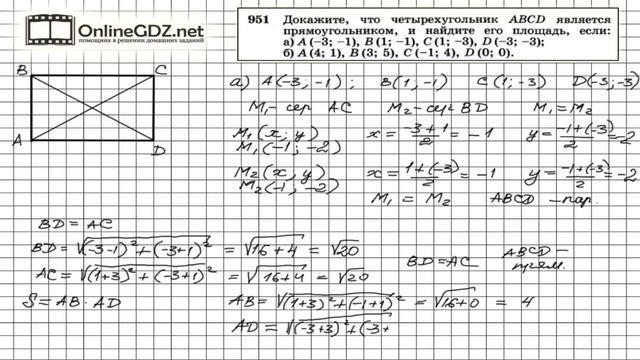 OnlineGDZ.net
помощник в решении домашних заданий
951 Докажите, что четырехугольник ABCD является
прямоугольником, и найдите его площадь, если:
а) A (−3; −1), B (1; −1), C (1; −3), D (−3; −3);
б) A (4; 1), B (3; 5), C (−1; 4), D (0; 0).
B C
A D
а) A(-3; -1); B(1; -1) C(1; -3) D(-3; -3)
M₁ - сер AC M₂ - сер BD M₁ = M₂
M₁(x; y) x = (-3+1)/2 = -1 y = (-1+(-3))/2 = -2
M₁(-1; -2)
M₂(x; y) x = (1+(-3))/2 = -1 y = (-1+(-3))/2 = -2
M₂(-1; -2)
M₁ = M₂ ABCD - пар.
BD = AC
BD = √((-3-1)²+(-3+1)²) = √(16+4) = √20
BD = AC ABCD - прям.
AC = √((1+3)²+(-3+1)²) = √(16+4) = √20
S = AB · AD AB = √((1+3)²+(-1+1)²) = √(16+0) = 4
AD = √((-3+3)²+(-3+